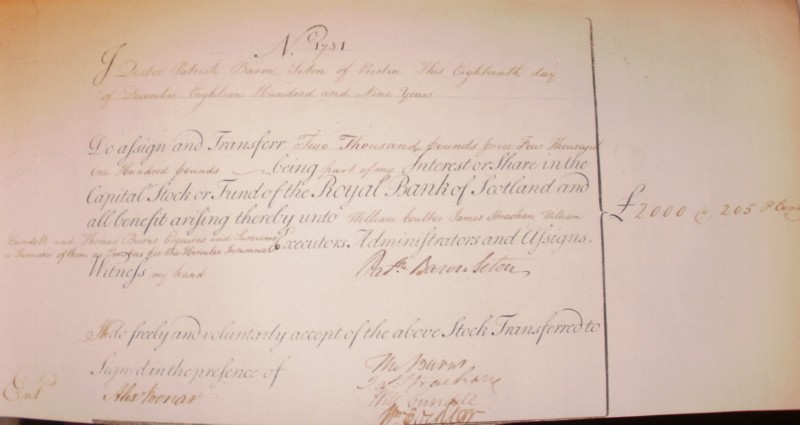 No. 1731
I Doctor Patrick Baron Seton of Preston This Eighteenth day
of December Eighteen Hundred and Nine Years
Do assign and Transferr Two Thousand pounds price Four Thousand
one Hundred pounds being part of my Interest or Share in the
Capital Stock or Fund of the Royal Bank of Scotland and
all benefit arising thereby unto William Coulter James Strachan William
Cundell and Thomas Burns Esquires and Survivors
or Survivor of them as Trustees for the Hercules Insurance Executors Administrators and Assigns.
Witness my hand
Patk Baron Seton
£2000 @ 205 P Cent
We do freely and voluntarily accept of the above Stock Transferred to
Signed in the presence of
Tho Burns
Jas Strachan
Will Cundell
Wm Coulter
Ent
Alexr Bonar